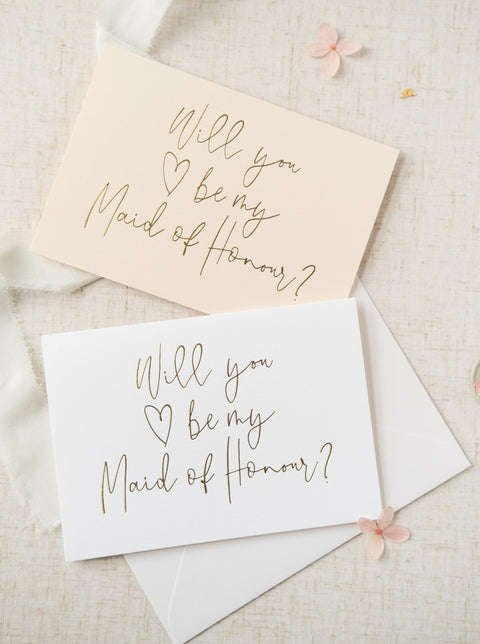 Will you
♡ be my
Maid of Honour?
Will you
♡ be my
Maid of Honour?